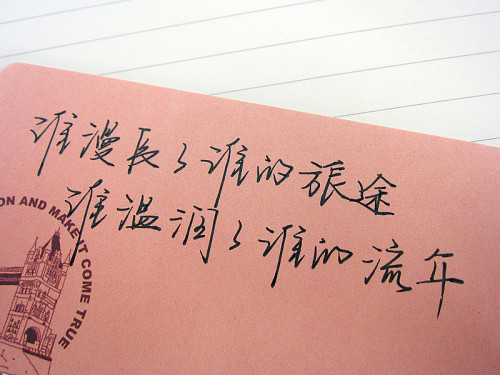 谁漫長了谁的旅途
谁温润了谁的流年
ON AND MAKE IT COME TRUE